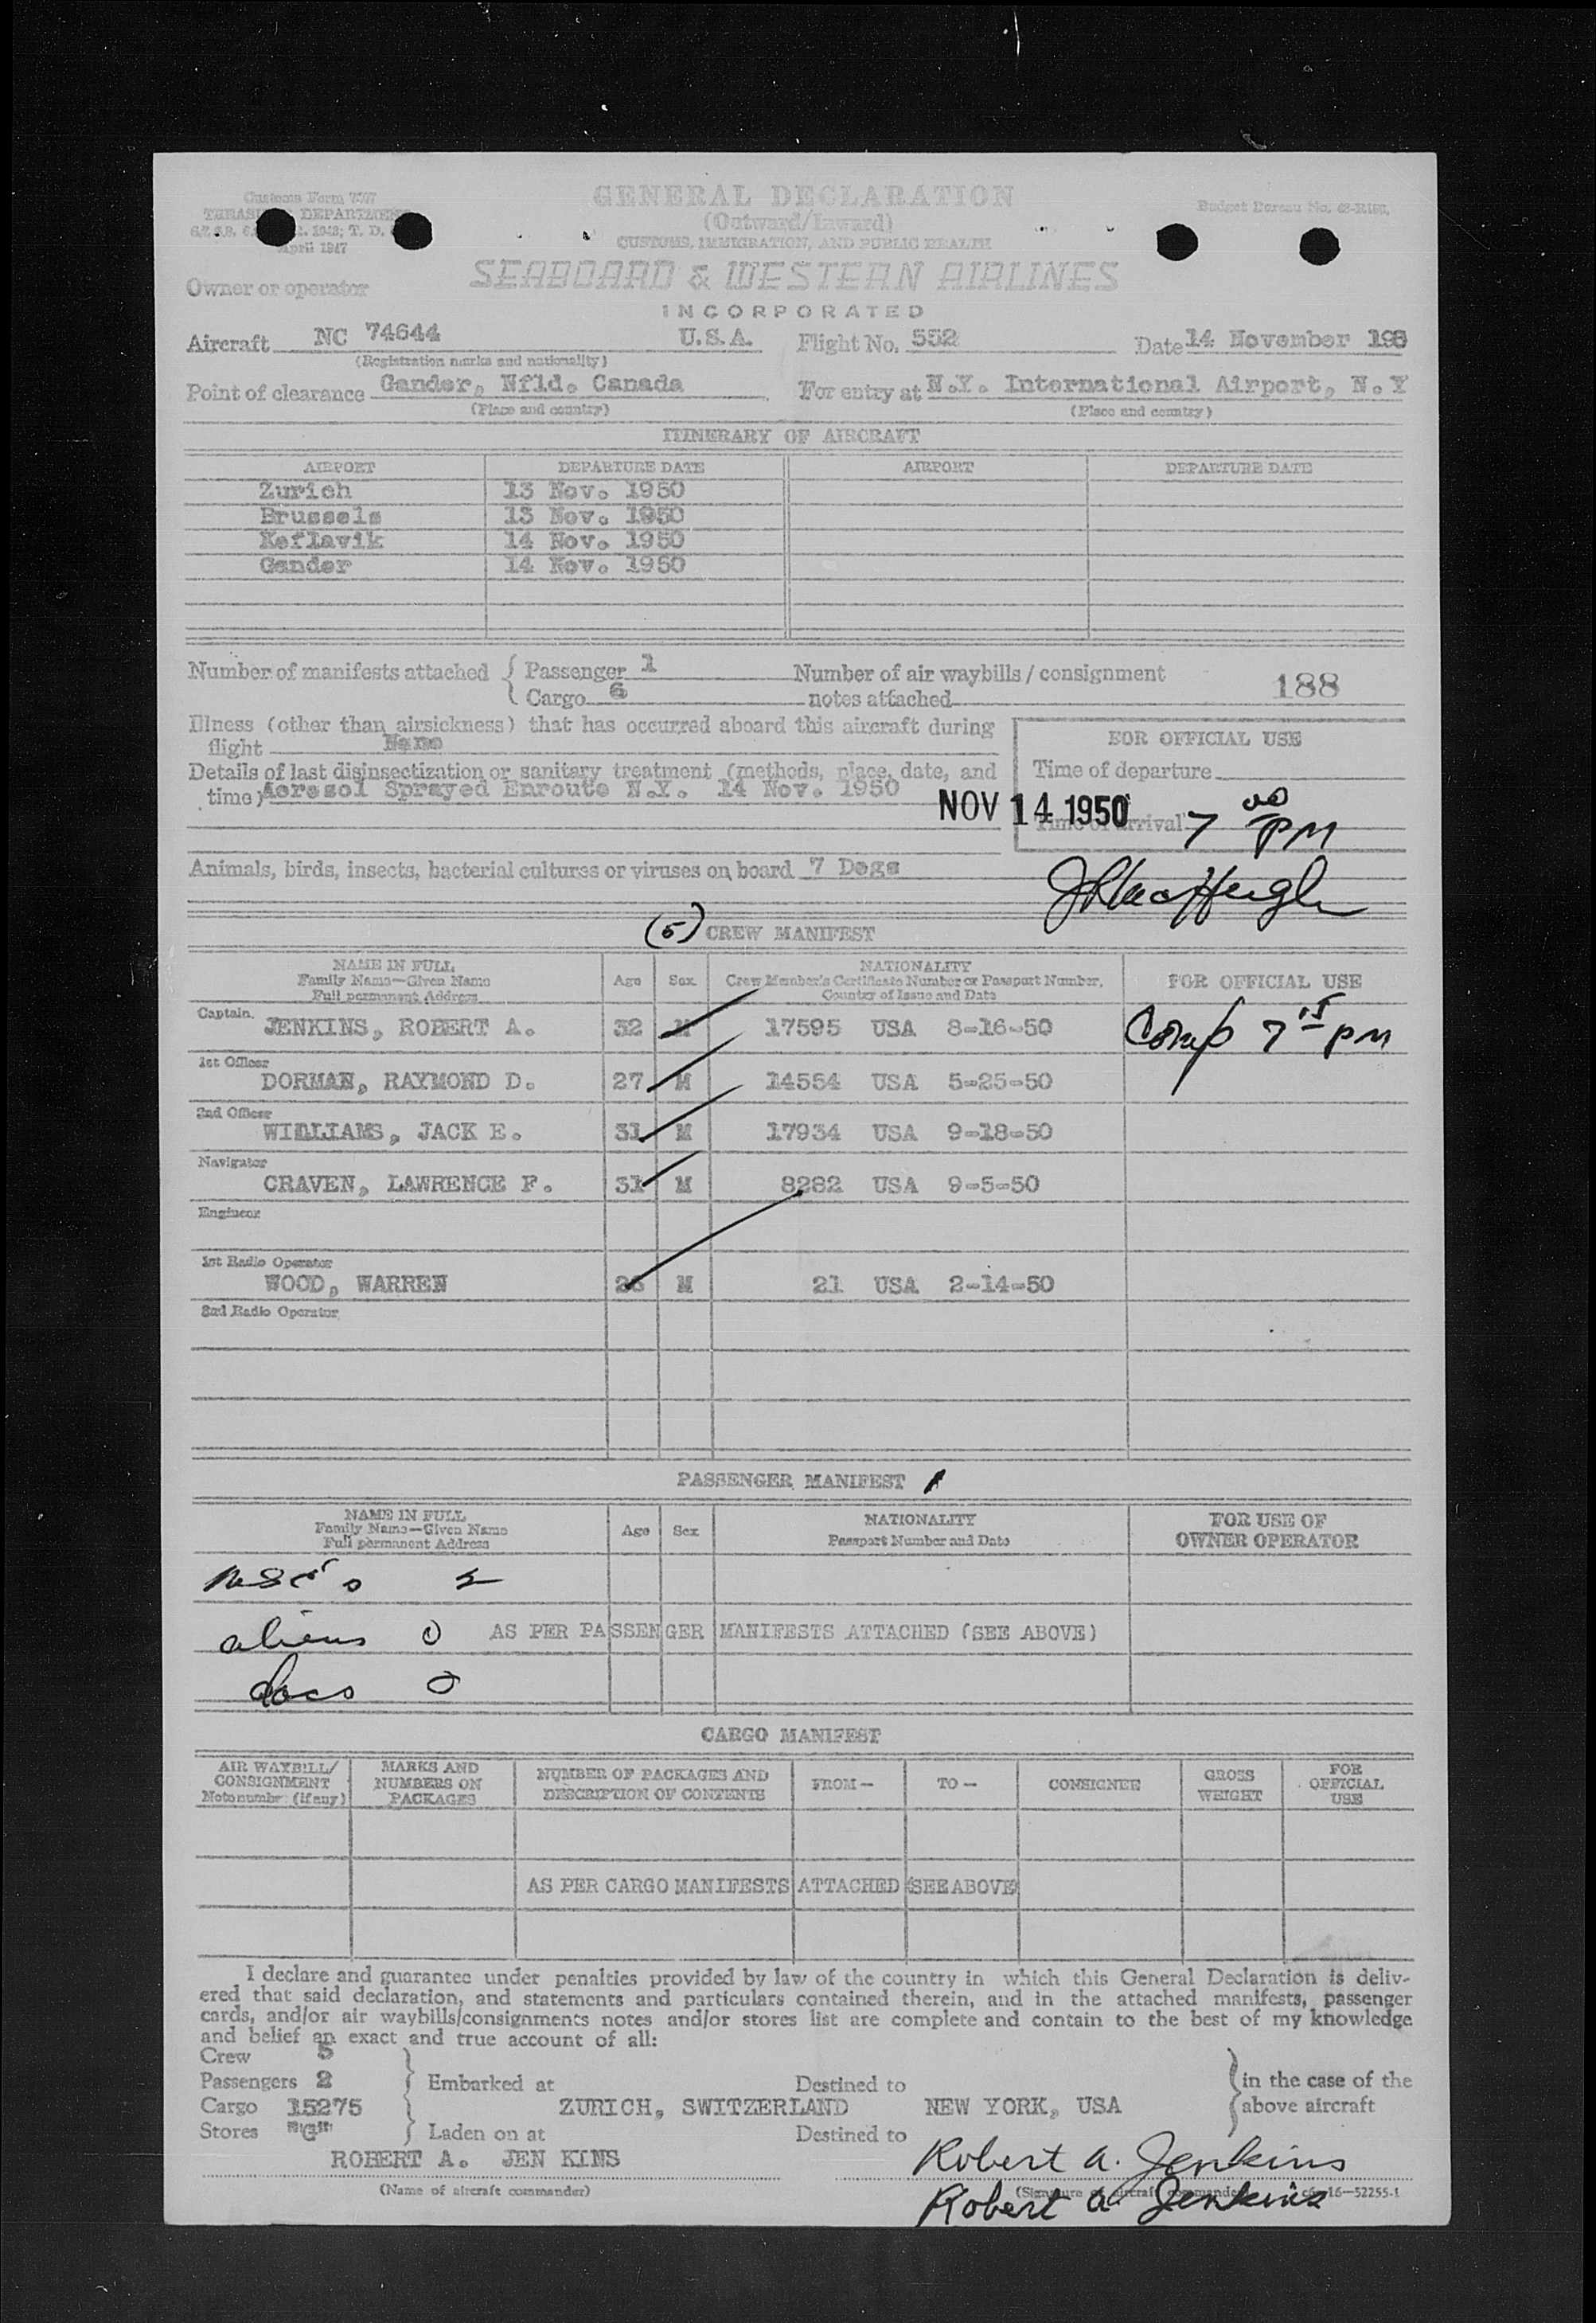 Customs Form 7507
TREASURY DEPARTMENT
1948; T. D.
April 1947
GENERAL DECLARATION
(Outward/Inward)
CUSTOMS, IMMIGRATION, AND PUBLIC HEALTH
Budget Bureau No.
SEABOARD & WESTERN AIRLINES
INCORPORATED
Owner or operator
Aircraft NC 74644 U.S.A. Flight No. 552 Date 14 November 195
(Registration marks and nationality)
Point of clearance Gander, Nfld. Canada For entry at N.Y. International Airport, N.Y
(Place and country) (Place and country)
ITINERARY OF AIRCRAFT
AIRPORT DEPARTURE DATE AIRPORT DEPARTURE DATE
Zurich 13 Nov. 1950
Brussels 13 Nov. 1950
Keflavik 14 Nov. 1950
Gander 14 Nov. 1950
Number of manifests attached { Passenger 1 Number of air waybills / consignment
Cargo 6 notes attached 188
Illness (other than airsickness) that has occurred aboard this aircraft during
flight None
FOR OFFICIAL USE
Details of last disinsectization or sanitary treatment (methods, place, date, and
time) Aoresol Sprayed Enroute N.Y. 14 Nov. 1950
Time of departure
NOV 14 1950
Time of arrival 7 00 PM
Animals, birds, insects, bacterial cultures or viruses on board 7 Dogs
(5) CREW MANIFEST
NAME IN FULL Age Sex NATIONALITY FOR OFFICIAL USE
Family Name—Given Name Crew Member's Certificate Number or Passport Number,
Full permanent Address Country of Issue and Date
Captain
JENKINS, ROBERT A. 32 M 17595 USA 8-16-50 Comp 7 15 pm
1st Officer
DORMAN, RAYMOND D. 27 M 14554 USA 5-25-50
2nd Officer
WILLIAMS, JACK E. 31 M 17934 USA 9-18-50
Navigator
CRAVEN, LAWRENCE F. 31 M 8282 USA 9-5-50
Engineer
1st Radio Operator
WOOD, WARREN M 21 USA 2-14-50
2nd Radio Operator
PASSENGER MANIFEST 1
NAME IN FULL Age Sex NATIONALITY FOR USE OF
Family Name—Given Name Passport Number and Date OWNER OPERATOR
Full permanent Address
aliens 0 AS PER PASSENGER MANIFESTS ATTACHED (SEE ABOVE)
docs 0
CARGO MANIFEST
AIR WAYBILL/ MARKS AND NUMBER OF PACKAGES AND FROM— TO— CONSIGNEE GROSS FOR
CONSIGNMENT NUMBERS ON DESCRIPTION OF CONTENTS WEIGHT OFFICIAL
Note numbr. (if any) PACKAGES USE
AS PER CARGO MANIFESTS ATTACHED (SEE ABOVE
I declare and guarantee under penalties provided by law of the country in which this General Declaration is deliv-
ered that said declaration, and statements and particulars contained therein, and in the attached manifests, passenger
cards, and/or air waybills/consignments notes and/or stores list are complete and contain to the best of my knowledge
and belief an exact and true account of all:
Crew 5
Passengers 2 Embarked at Destined to in the case of the
Cargo 15275 ZURICH, SWITZERLAND NEW YORK, USA above aircraft
Stores "G" Laden on at Destined to
ROBERT A. JEN KINS Robert A. Jenkins
(Name of aircraft commander) (Signature of aircraft commander) 16—52255-1
Robert A. Jenkins